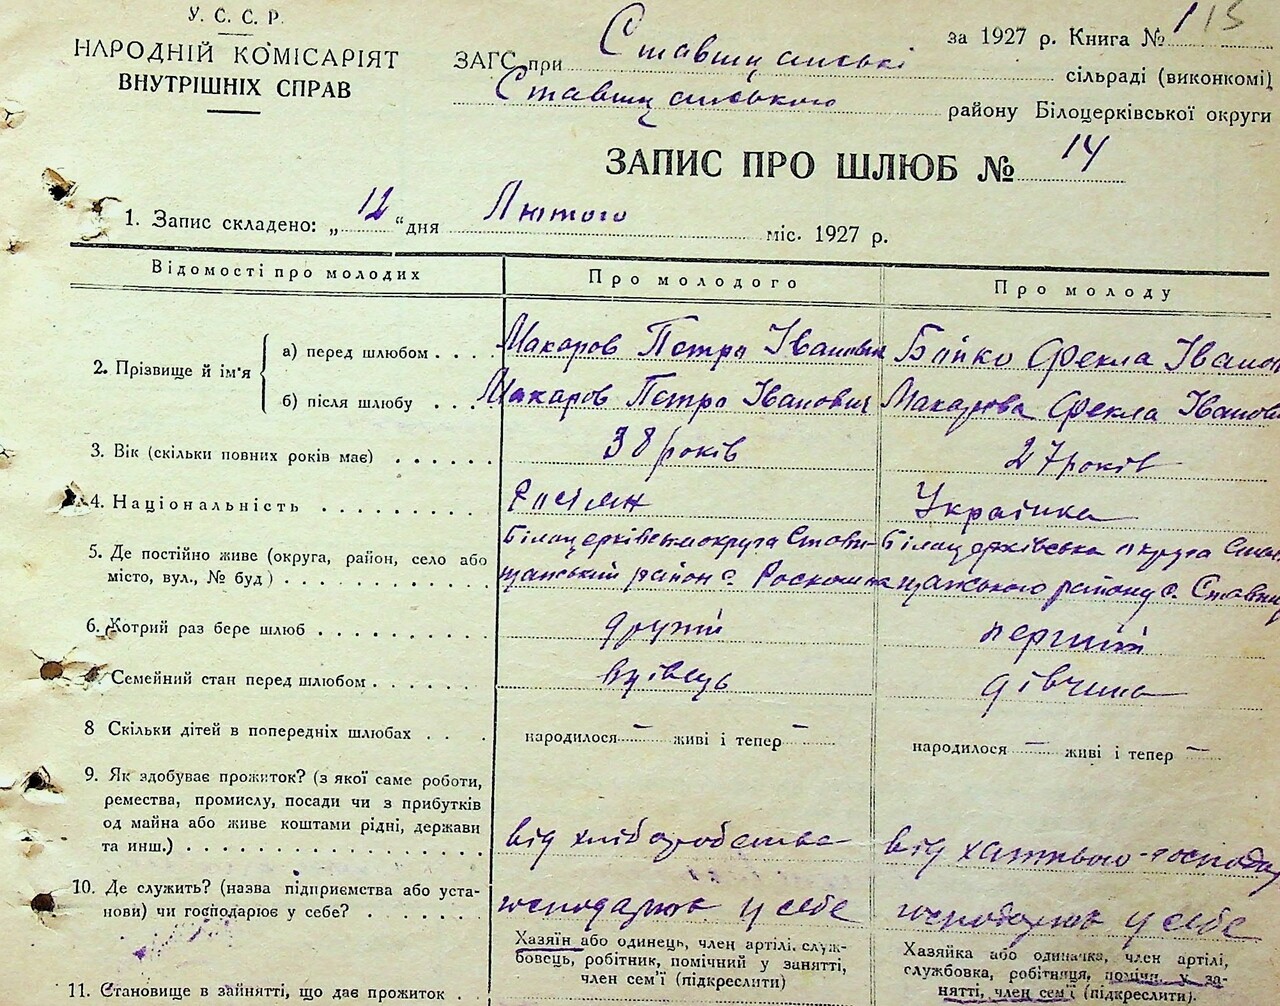 У. С. С. Р.
НАРОДНІЙ КОМІСАРІЯТ
ВНУТРІШНІХ СПРАВ
за 1927 р. Книга № 1 15
ЗАГС при Ставищанські сільраді (виконкомі)
Ставищанського району Білоцерківської округи
ЗАПИС ПРО ШЛЮБ № 14
1. Запис складено: „12“ дня Лютого міс. 1927 р.
Відомості про молодих Про молодого Про молоду
2. Прізвище й ім'я
а) перед шлюбом . . . . Макаров Петро Іванович Бойко Фекла Іванов
б) після шлюбу . . . Макаров Петро Іванович Макарова Фекла Іванов
3. Вік (скільки повних років має) . . . . . . 38 років 27 років
4. Національність . . . . . . . . . Росіян Українка
5. Де постійно живе (округа, район, село або Білоцерківська округа Стави- Білоцерківська округа Став
місто, вул., № буд) . . . . . . . . . . щанський район с. Роскошна щанського району с. Ставищ
6. Котрий раз бере шлюб . . . . . . . . . другий перший
Семейний стан перед шлюбом . . . . . . . вдівець дівчина
8 Скільки дітей в попередніх шлюбах . . . народилося — живі і тепер — народилося — живі і тепер —
9. Як здобуває прожиток? (з якої саме роботи,
ремества, промислу, посади чи з прибутків
од майна або живе коштами рідні, держави
та инш.) . . . . . . . . . . . . . . від хліборобства від хатнього господар
10. Де служить? (назва підприємства або уста-
нови) чи господарює у себе? . . . . . . господарює у себе господарює у себе
Хазяїн або одинець, член артілі, служ-
бовець, робітник, помічний у занятті,
член сем'ї (підкреслити)
Хазяйка або одиначка, член артілі,
службовка, робітниця, поміч. у за-
нятті, член сем'ї (підкреслити)
11. Становище в зайнятті, що дає прожиток .